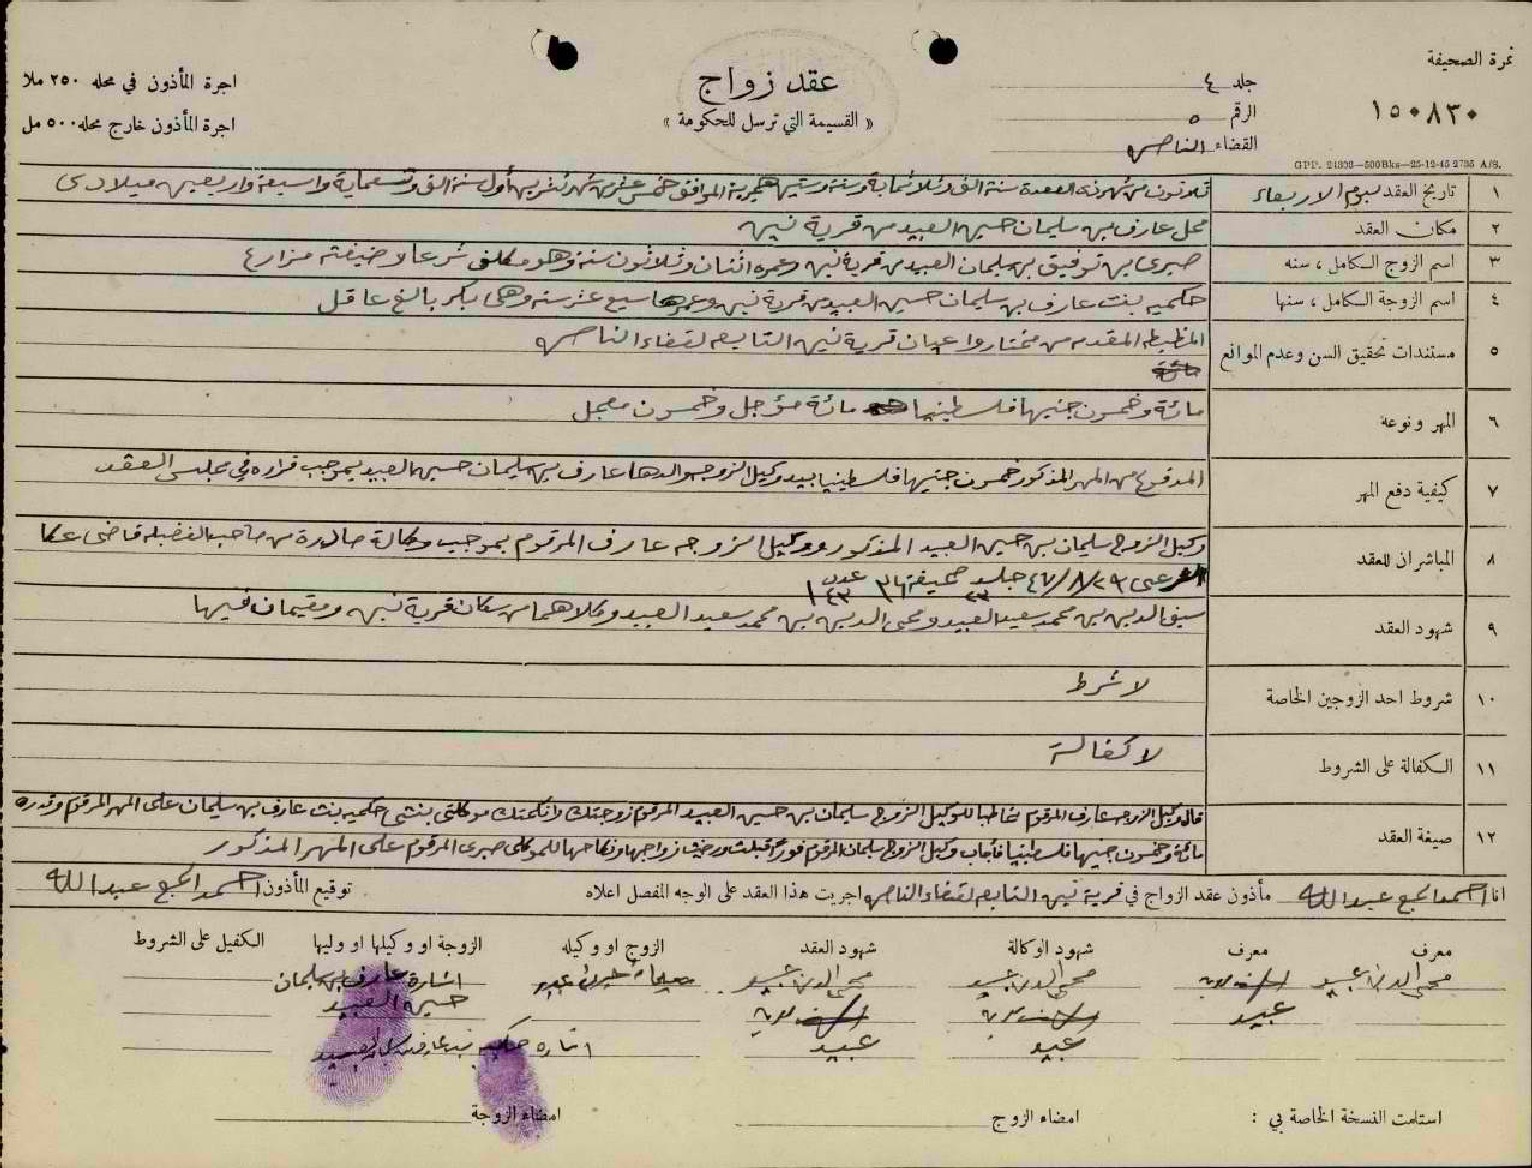 نمرة الصحيفة
١٥٠٨٣٠
جلد ٤
الرقم ٥
القضاء الناصره
عقد زواج
« القسيمة التي ترسل للحكومة »
اجرة المأذون في محله ٢٥٠ ملا
اجرة المأذون خارج محله ٥٠٠ مل
GPP. 21303—500Bks—25-12-45 2735 A/S.
١ تاريخ العقد يوم الاربعاء ثلاثون من شهر ذي القعدة سنة الف وثلاثماية وستة وستين هجرية الموافق خمس عشر من شهر تشرين أول سنة الف وتسعماية واسبعة واربعين ميلادى
٢ مكان العقد محل عارف بن سليمان حسين العبيد من قرية نين
٣ اسم الزوج الكامل ، سنه صبرى بن توفيق بن سليمان العبيد من قرية نين وعمره اثنان وثلاثون سنة وهو مكلف شرعا وضيفته مزارع
٤ اسم الزوجة الكامل ، سنها حكميه بنت عارف بن سليمان حسين العبيد من قرية نين وعمرها سبع عشر سنة وهي بكر بالغ عاقل
٥ مستندات تحقيق السن وعدم الموانع المظبطه المقدمه من مختار واعيان قرية نين التابعه لقضاء الناصره
٦ المهر ونوعه مائة وخمسون جنيها فلسطينيا مائة مؤجل وخمسون معجل
٧ كيفية دفع المهر المدفوع من المهر المذكور خمسون جنيها فلسطينيا بيد وكيل الزوجه والدها عارف بن سليمان حسين العبيد بموجب قراره في مجلس العقد
٨ المباشران للعقد وكيل الزوج سليمان بن حسين العبيد المذكور ووكيل الزوجه عارف المرقوم بموجب وكالة صادرة من صاحب الفضيله قاضى عكا
الشرعى ٤٧/٨/٢٩ جلد ٢٣ صحيفة ٣٦ عدد ١٤٣
٩ شهود العقد سيف الدين بن محمد سعيد العبيد ومحى الدين بن محمد سعيد العبيد وكلاهما من سكان قرية نين ومقيمان فيها
١٠ شروط احد الزوجين الخاصة لا شرط
١١ الكفالة على الشروط لا كفالة
١٢ صيغة العقد قال وكيل الزوجه عارف المرقوم مخاطبا للوكيل الزوج سليمان بن حسين العبيد المرقوم زوجتك وانكحتك موكلتى بنتى حكميه بنت عارف بن سليمان على المهر المرقوم وقدره
مائة وخمسون جنيها فلسطينيا فأجاب وكيل الزوج سليمان المرقوم فورا قبلت ورضيت زواجها ونكاحها للموكلى صبرى المرقوم على المهر المذكور
انا احمد الحج عبد الله مأذون عقد الزواج في قرية نين التابعه لقضاء الناصره اجريت هذا العقد على الوجه المفصل اعلاه توقيع المأذون احمد الحج عبد الله
معرف معرف شهود الوكالة شهود العقد الزوج او وكيله الزوجة او وكيلها او وليها الكفيل على الشروط
محي الدين عبيد سيف الدين محي الدين عبيد محي الدين عبيد سليمان حسين عبيد اشارة عارف بن سليمان
عبيد سيف الدين سيف الدين حسين العبيد
عبيد عبيد اشارة حكميه بنت عارف بن سليمان العبيد
استلمت النسخة الخاصة بي : امضاء الزوج امضاء الزوجة